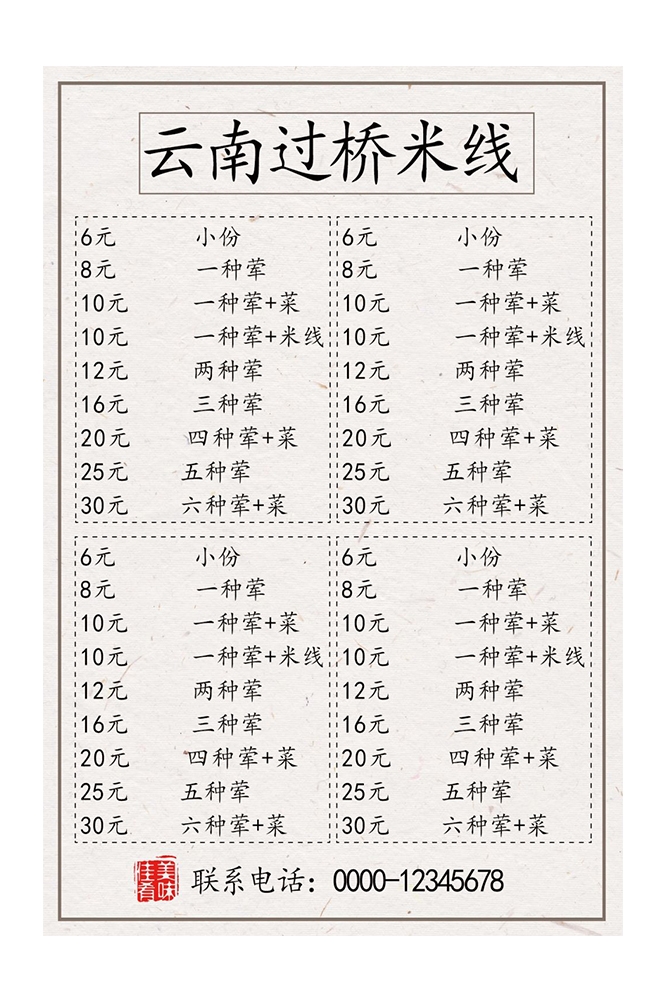 云南过桥米线
6元 小份
8元 一种荤
10元 一种荤+菜
10元 一种荤+米线
12元 两种荤
16元 三种荤
20元 四种荤+菜
25元 五种荤
30元 六种荤+菜
6元 小份
8元 一种荤
10元 一种荤+菜
10元 一种荤+米线
12元 两种荤
16元 三种荤
20元 四种荤+菜
25元 五种荤
30元 六种荤+菜
6元 小份
8元 一种荤
10元 一种荤+菜
10元 一种荤+米线
12元 两种荤
16元 三种荤
20元 四种荤+菜
25元 五种荤
30元 六种荤+菜
6元 小份
8元 一种荤
10元 一种荤+菜
10元 一种荤+米线
12元 两种荤
16元 三种荤
20元 四种荤+菜
25元 五种荤
30元 六种荤+菜
美味佳肴
联系电话：0000-12345678